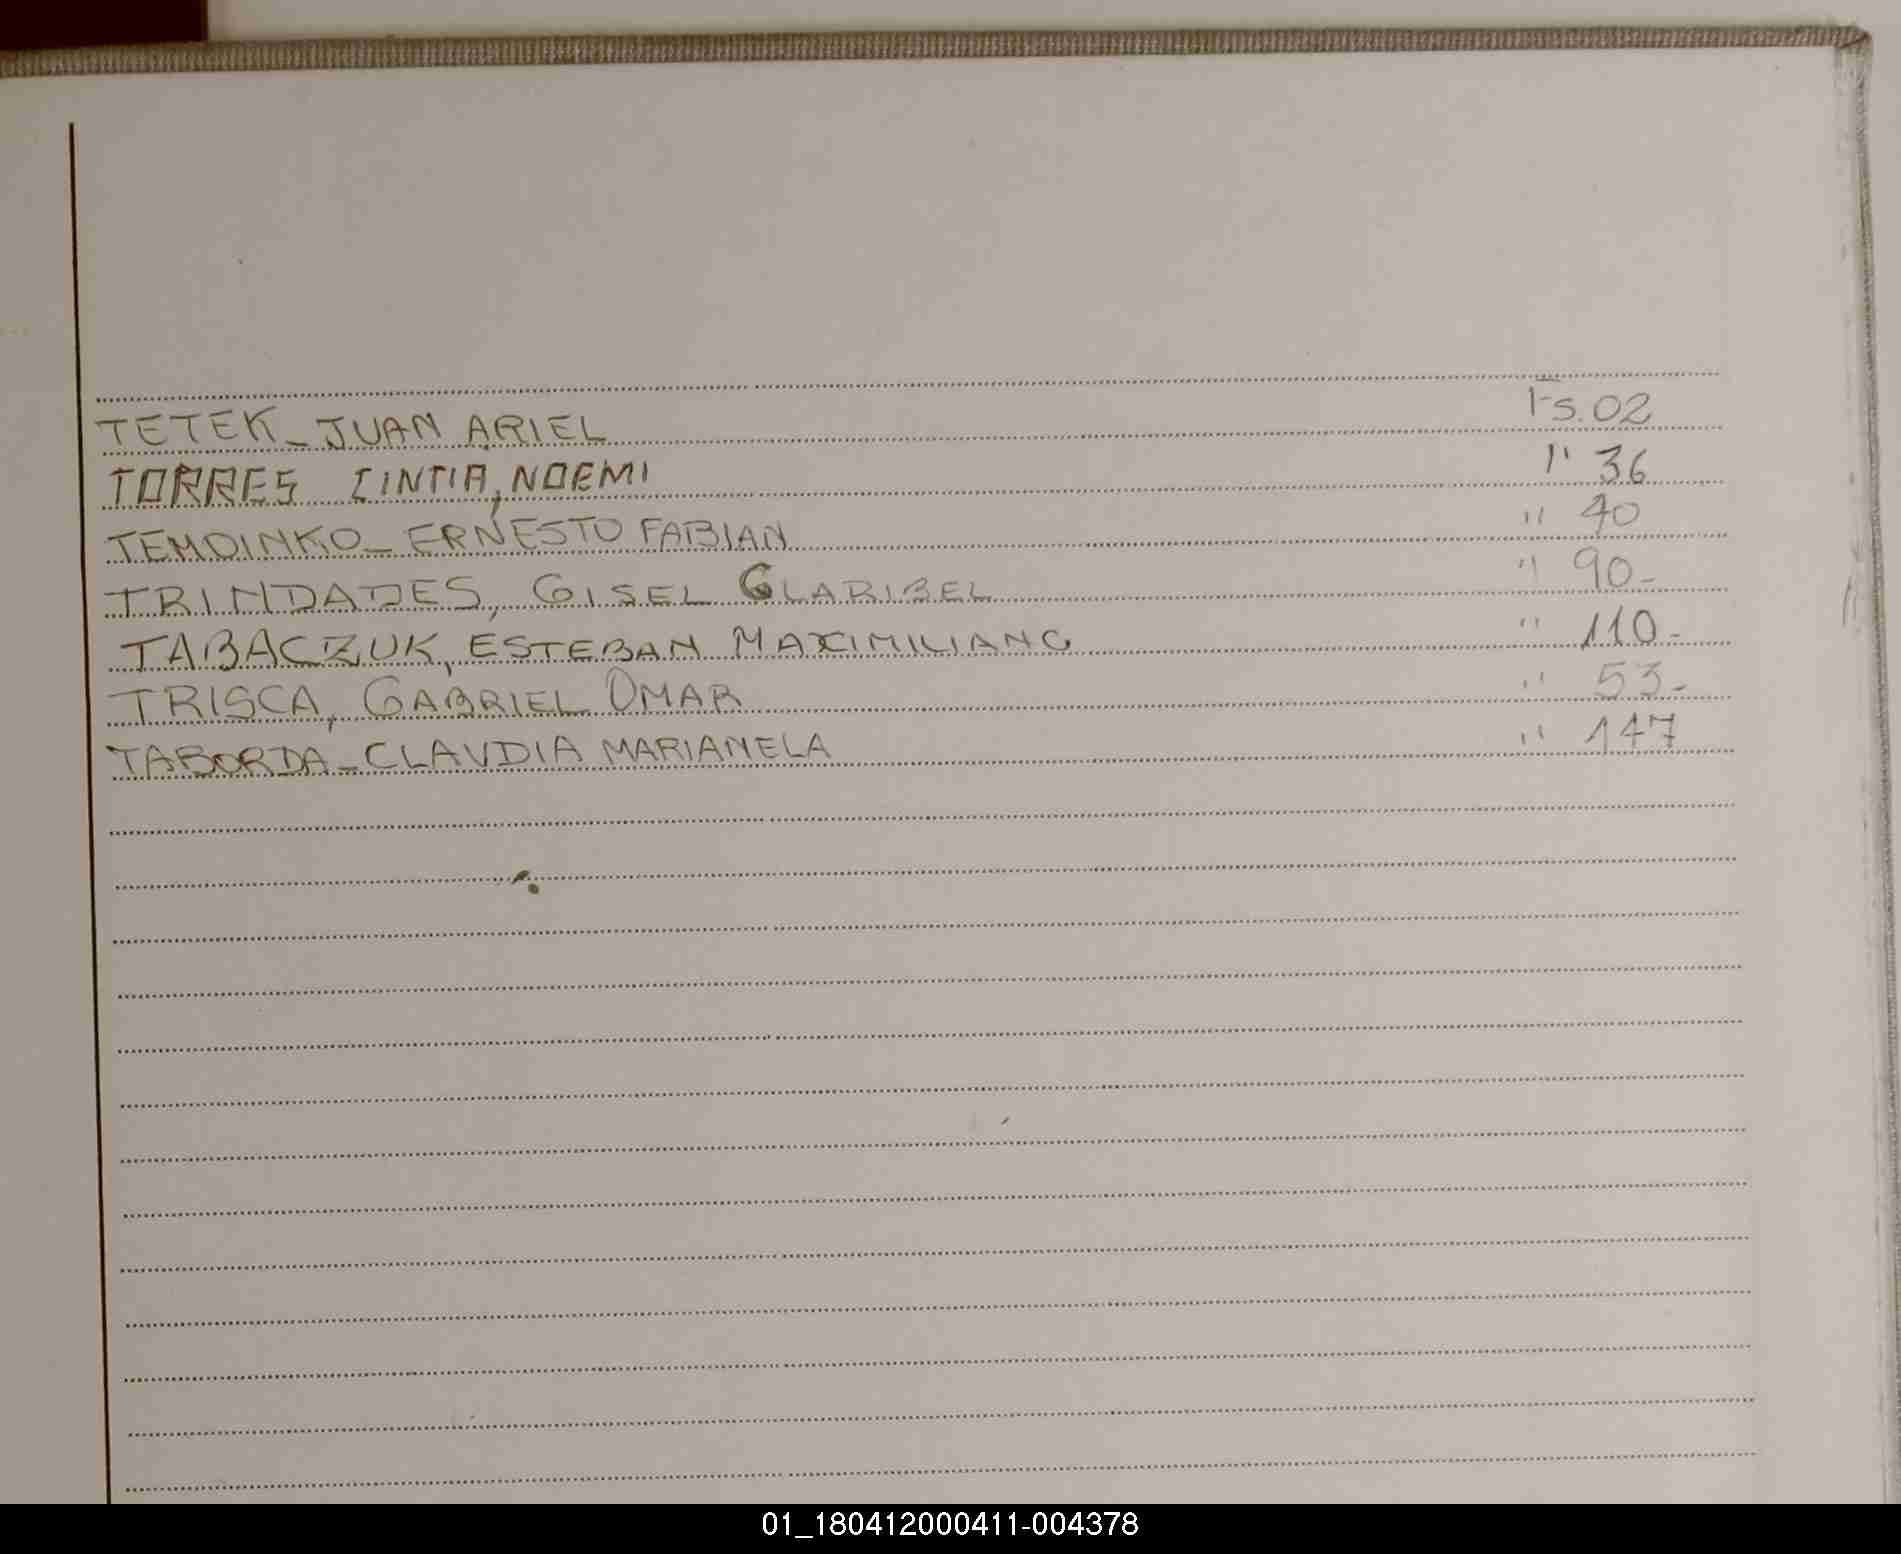 TETEK_JUAN ARIEL Fs.02
TORRES CINTIA, NOEMI " 36
TEMDINKO_ERNESTO FABIAN " 40
TRINDADES, GISEL CLARIBEL " 90-
TABACZUK, ESTEBAN MAXIMILIANO " 110-
TRISCA, GABRIEL OMAR " 53-
TABORDA_CLAUDIA MARIANELA " 147
01_180412000411-004378